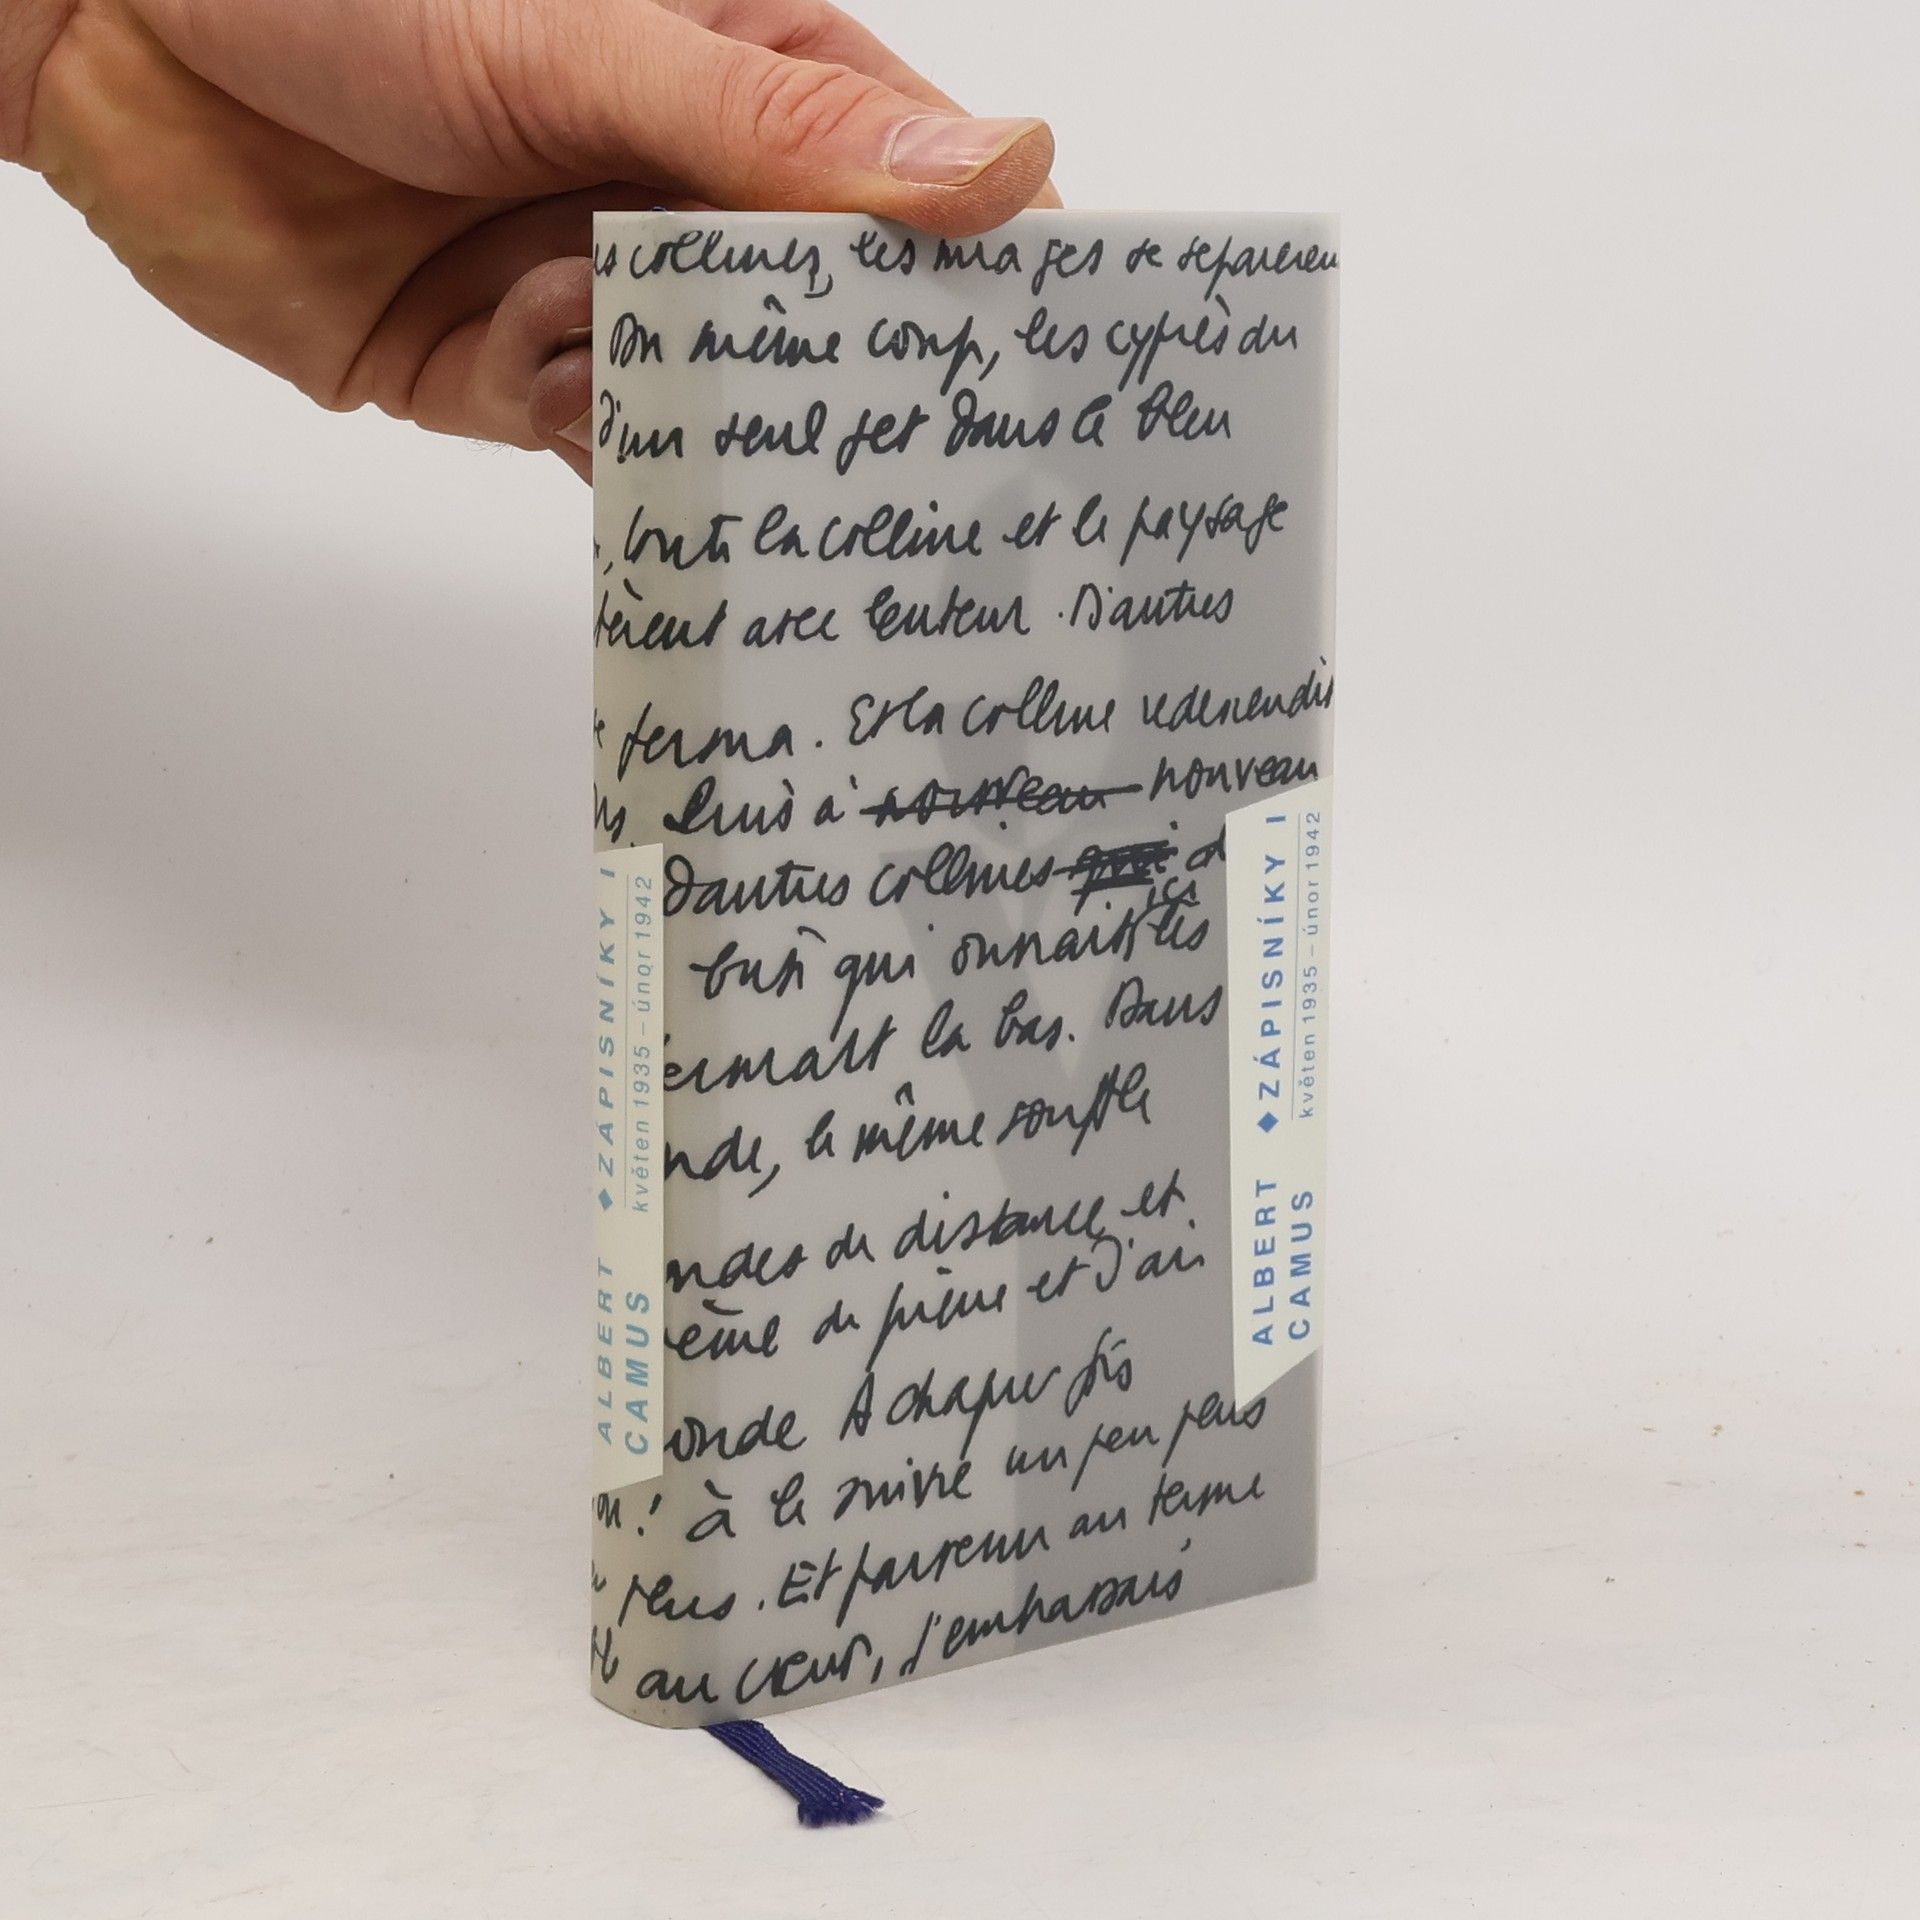 collines, les nuages se séparèren
Du même coup, les cyprès du
d'un seul jet dans le bleu
toute la colline et le paysage
tèrent avec lenteur. D'autres
ferma. Et la colline redescendit
Puis à nouveau nouveau
D'autres collines qui
ici
qui ouvrait les
fermait là bas. Dans
nde, le même souffle
ndes de distance et
ême de pierre et d'air
onde A chaque fois
on! à le suivre un peu plus
plus. Et parvenu au terme
au cœur, j'embrassais
ALBERT CAMUS
◆ZÁPISNÍKY I
květen 1935 – únor 1942
ALBERT CAMUS
◆ZÁPISNÍKY I
květen 1935 – únor 1942